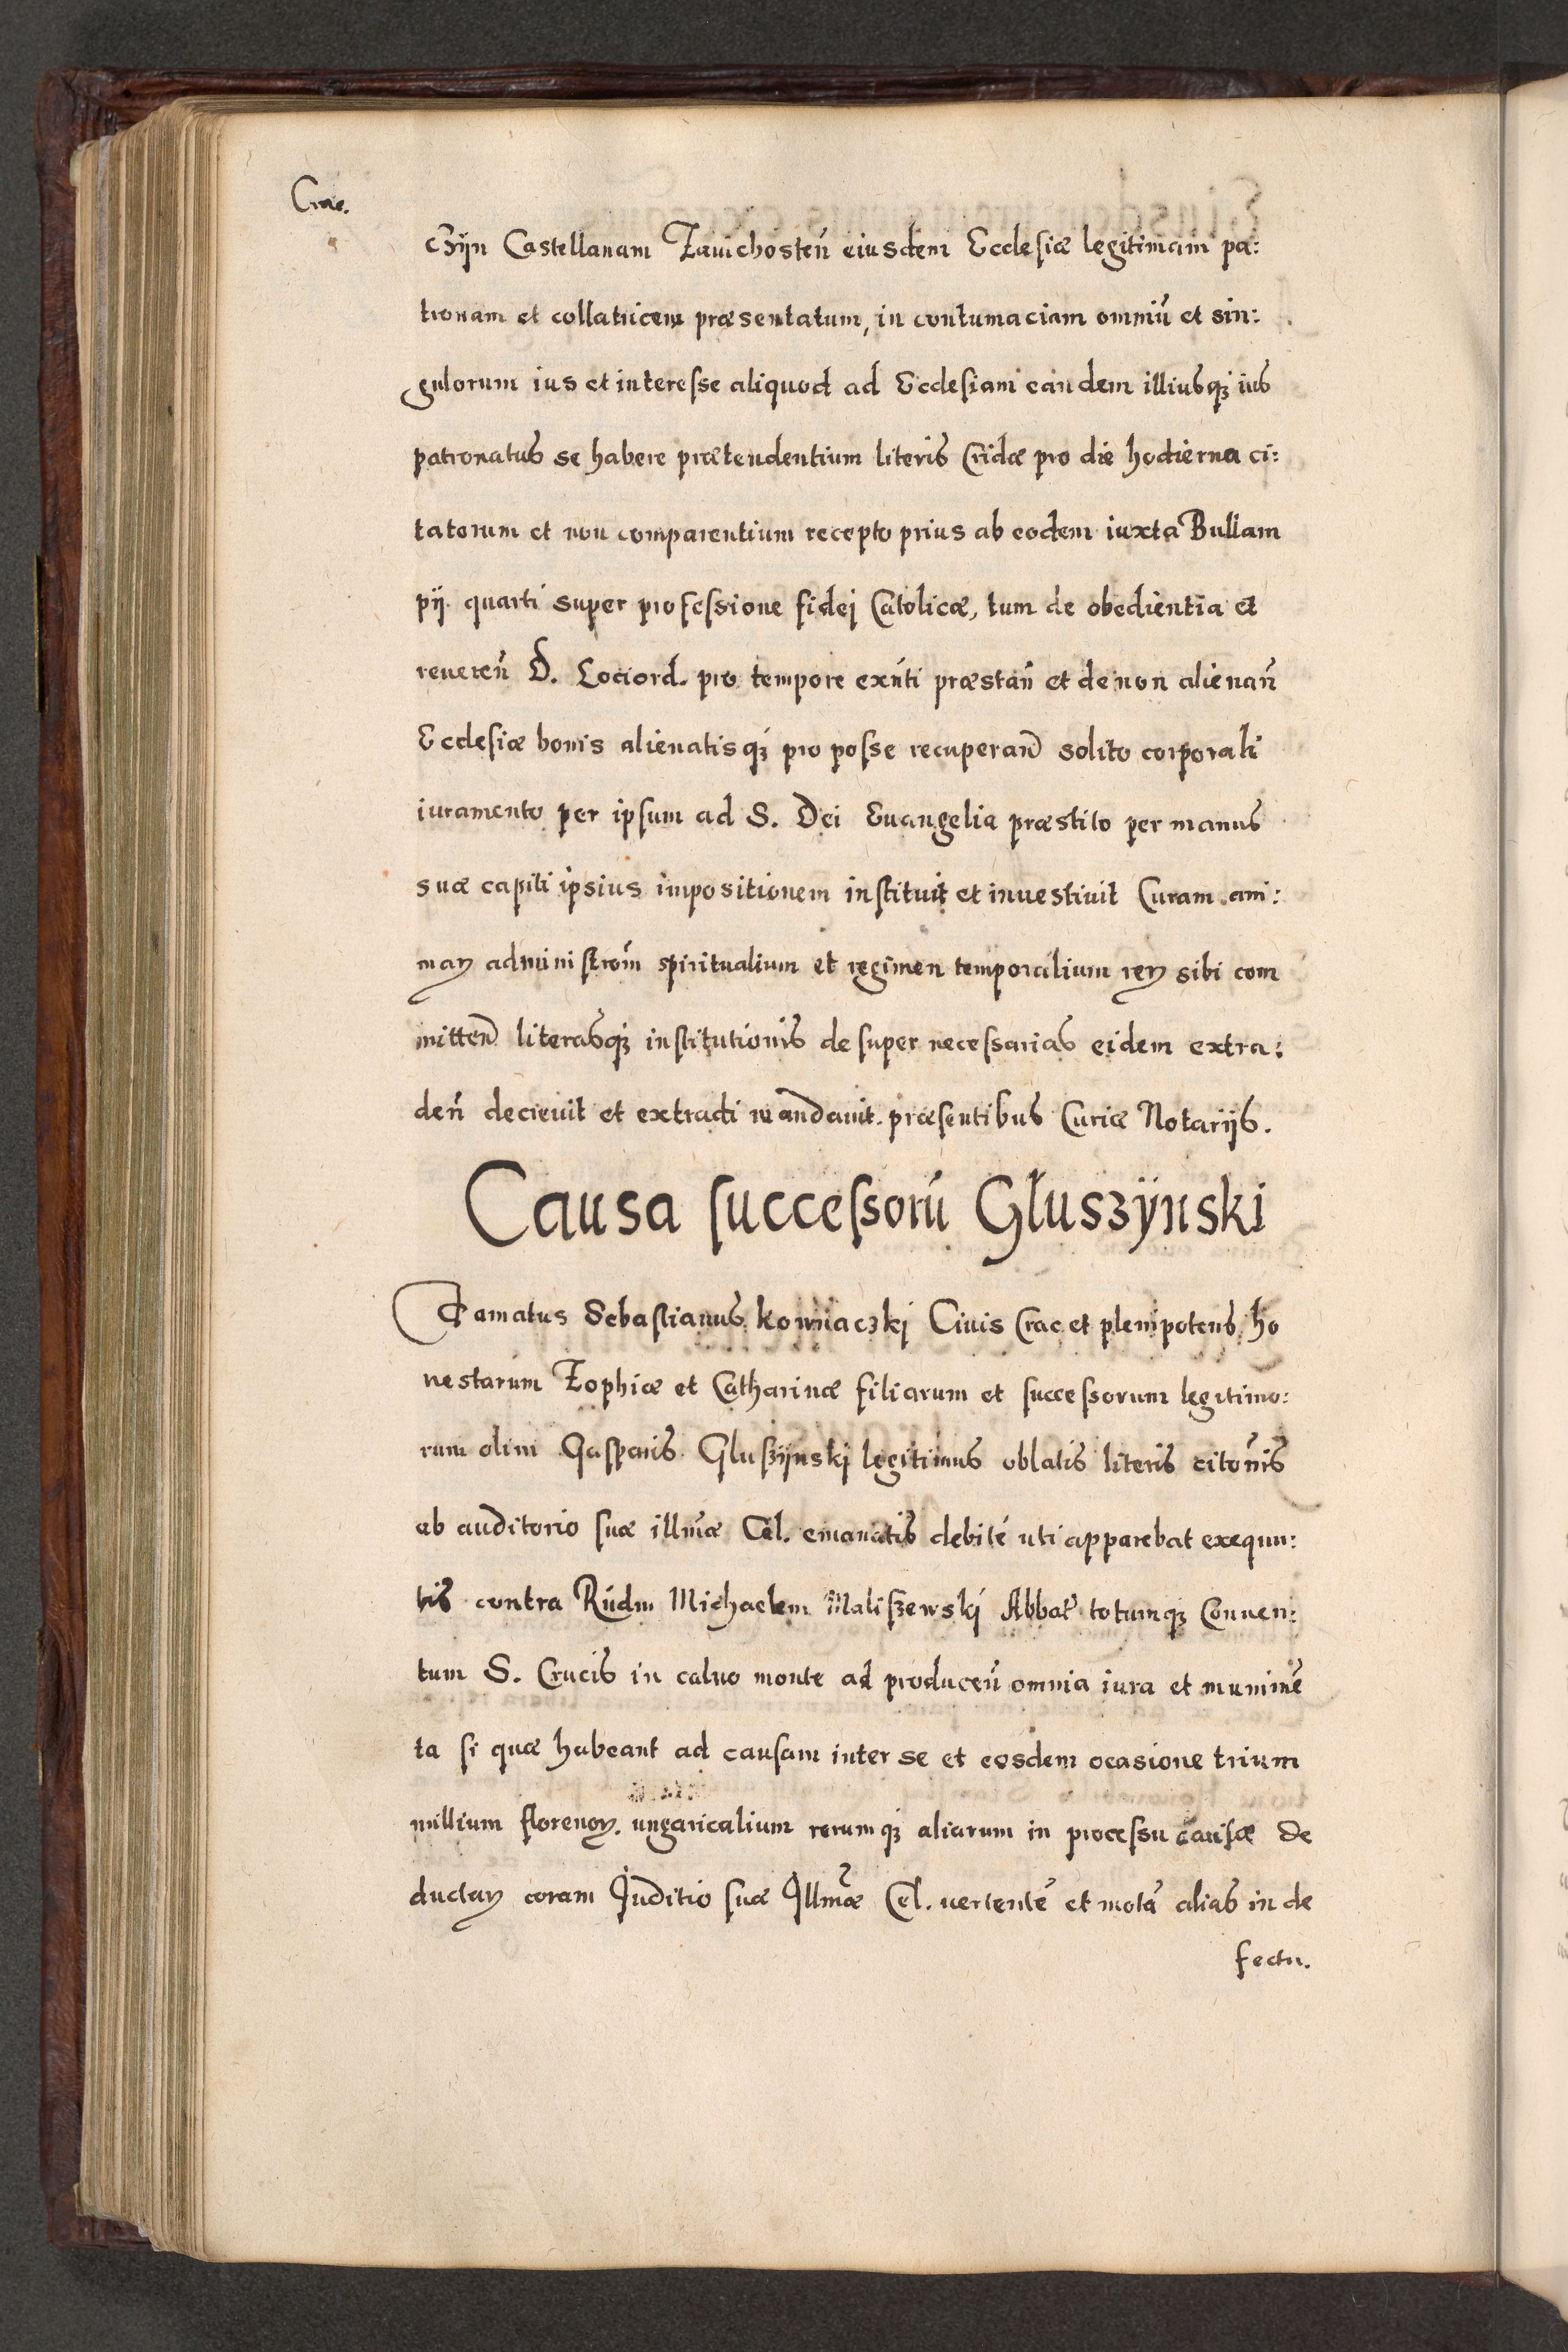 Crac.
czÿn Castellanam Zauichosteñ eiusdem Ecclesiæ legitimam pa:
tronam et collatricem præsentatum, in contumaciam omniũ et sin:
gulorum ius et interesse aliquod ad Ecclesiam eandem illiusqȝ ius
patronatus se habere prætendentium literis Cridæ pro die hodierna ci:
tatorum et non comparentium recepto prius ab eodem iuxta Bullam
pij quarti super professione fidej Catolicæ, tum de obedientia et
reuereñ D. Lociord. pro tempore exñti præstañ et de non alienañ
Ecclesiæ bonis alienatisqȝ pro posse recuperañ solito corporali
iuramento per ipsum ad S. Dei Euangelia præstito per manus
suæ capiti ipsius impositionem instituit et inuestiuit Curam ani:
maꝝ administrom̃ spiritualium et regimen temporalium reꝝ sibi com
mitteñ literasqȝ institutionis desuper necessarias eidem extra:
deñ decreuit et extradi mandauit. præsentibus Curiæ Notarijs.
Causa successorũ Głuszÿnski
Famatus Sebastianus Kownaczkj Ciuis Crac et plenipotens ho
nestarum Zophiæ et Catharinæ filiarum et successorum legitimo:
rum olim Gasparis Gluszÿnskj legitimus oblatis literis citoñis
ab auditorio suæ illm̃æ Cel. emanatis debité uti apparebat exequu:
tis contra Rũdm Michaelem Maliszewskj Abbat̃ totumqȝ Conuen:
tum S. Crucis in caluo monte ad produceñ omnia iura et munimẽ
ta si quæ habeant ad causam inter se et eosdem ocasione trium
millium florenoꝝ. ungaricalium rerumqȝ aliarum in processu causæ de
ductaꝝ coram Juditio suæ Jllm̃æ Cel. uertentẽ et motã alias in de
fectu.